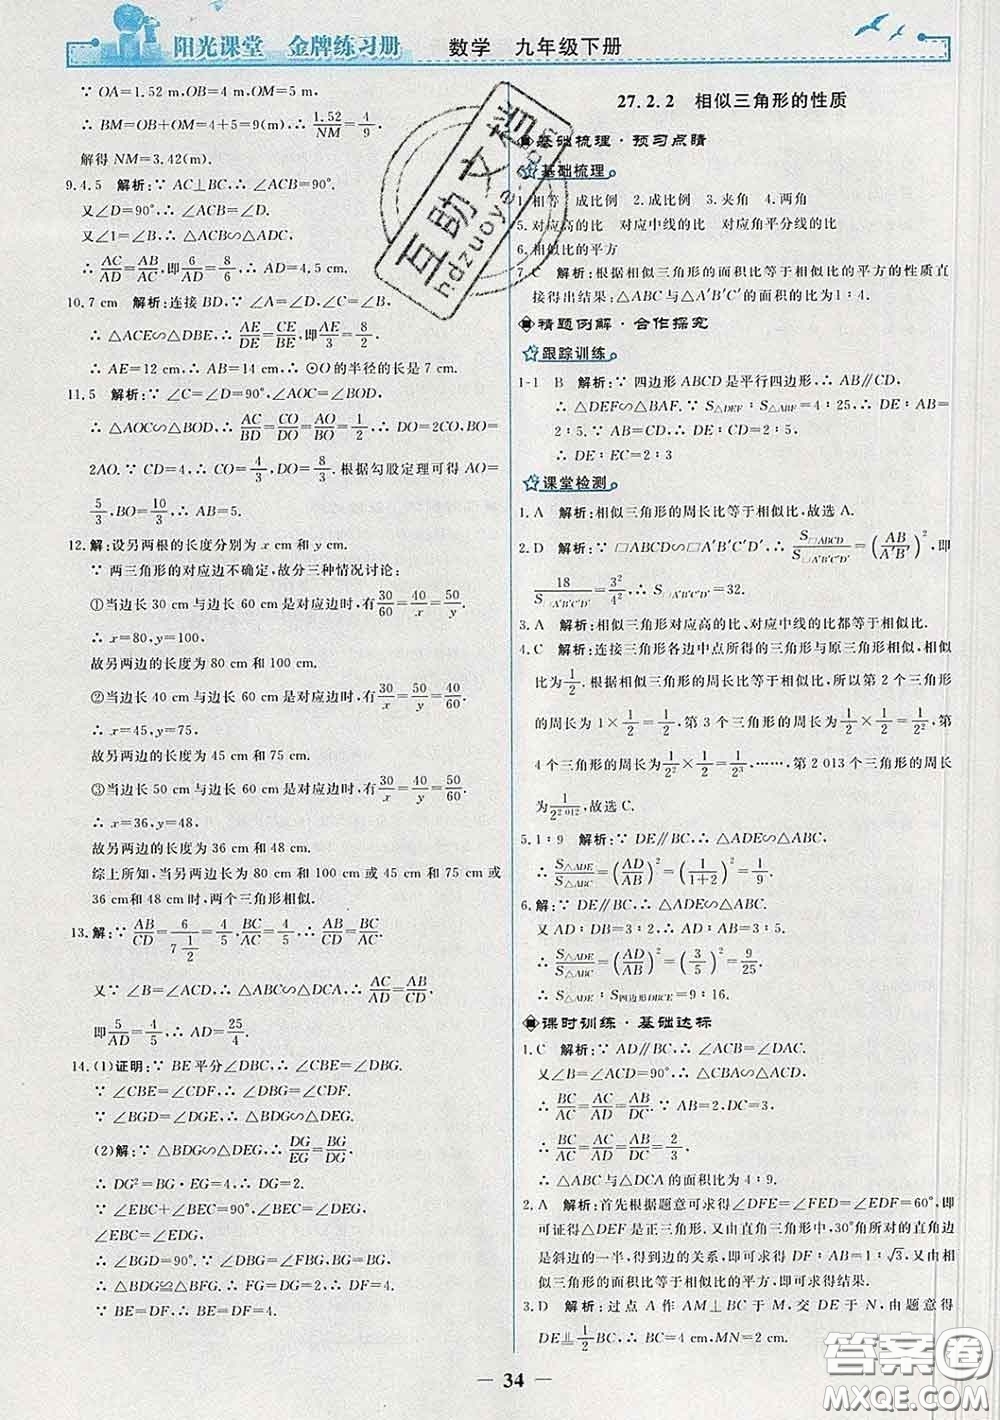 阳光课堂　金牌练习册　数学　九年级下册
∵ OA=1.52 m,OB=4 m,
∴ BM=OB+OM=4+5=9(m),∴ 1.52/NM=4/9.
解得 NM=3.42(m).
9.4.5　解析:∵ AC⊥BC,∴ ∠ACB=90°.
又∠D=90°,∴ ∠ACB=∠D.
又∠1=∠B,∴ △ACB∽△ADC,
∴ AC/AD=AB/AC,即6/AD=8/6,∴ AD=4.5 cm.
10.7 cm　解析:连接 BD,∵ ∠A=∠D,∠C=∠B,
∴ △ACE∽△DBE,∴ AE/DE=CE/BE,即AE/3=8/2
∴ AE=12 cm,∴ AB=14 cm,∴ ⊙O 的半径的长是 7 cm.
11.5　解析:∵ ∠C=∠D=90°,∠AOC=∠BOD,
∴ △AOC∽△BOD,∴ AC/BD=CO/DO=AO/BO=1/2,∴ DO=2CO,BO=
2AO.∵ CD=4,∴ CO=4/3,DO=8/3.根据勾股定理可得 AO=
5/3,BO=10/3,∴ AB=5.
12.解:设另两根的长度分别为 x cm 和 y cm.
∵ 两三角形的对应边不确定,故分三种情况讨论:
①当边长 30 cm 与边长 60 cm 是对应边时,有30/60=40/x=50/y,
∴ x=80,y=100,
故另两边的长度为 80 cm 和 100 cm.
②当边长 40 cm 与边长 60 cm 是对应边时,有30/x=50/y=40/60,
∴ x=45,y=75,
故另两边的长度为 45 cm 和 75 cm.
③当边长 50 cm 与边长 60 cm 是对应边时,有30/x=40/y=50/60,
∴ x=36,y=48,
故另两边的长度为 36 cm 和 48 cm.
综上所知,当另两边的长度为 80 cm 和 100 cm 或 45 cm 和 75 cm 或
36 cm和 48 cm 时,两个三角形相似.
13.解:∵ AB/CD=6/(7 1/2)=4/5,BC/AC=4/5,∴ AB/CD=BC/AC.
又∵ ∠B=∠ACD,∴ △ABC∽△DCA,∴ AC/AD=AB/CD,
即5/AD=4/5,∴ AD=25/4.
14.(1)证明:∵ BE 平分∠DBC,∴ ∠CBE=∠DBG.
∵ ∠CBE=∠CDF,∴ ∠DBG=∠CDF.
∵ ∠BGD=∠DGE,∴ △BDG∽△DEG.
(2)解:∵ △BDG∽△DEG,∴ DG/EG=BG/DG,
∴ DG²=BG·EG=4,∴ DG=2.
∵ ∠EBC+∠BEC=90°,∠BEC=∠DEG,∠EBC=
∠EDG,
∴ ∠BGD=90°.∵ ∠DBG=∠FBG,BG=BG,
∴ △BDG≌△BFG.∴ FG=DG=2,∴ DF=4.
∵ BE=DF,∴ BE=DF=4.
27.2.2　相似三角形的性质
基础梳理·预习点睛
基础梳理
1.相等　成比例　2.成比例　3.夹角　4.两角
5.对应高的比　对应中线的比　对应角平分线的比
6.相似比的平方
7.C　解析:根据相似三角形的面积比等于相似比的平方的性质直
接得出结果;△ABC与△A′B′C′的面积的比为1∶4.
精题例解·合作探究
跟踪训练
1-1　B　解析:∵ 四边形 ABCD 是平行四边形,∴ AB∥CD,
∴ △DEF∽△BAF.∵ S△DEF∶S△ABF=4∶25,∴ DE∶AB=
2∶5.∵ AB=CD,∴ DE∶CD=2∶5,
∴ DE∶EC=2∶3
课堂检测
1.A　解析:相似三角形的周长比等于相似比,故选 A.
2.D　解析:∵ □ABCD∽□A′B′C′D′,∴ S□ABCD/S□A′B′C′D′=(AB/A′B′)²,即
18/S□A′B′C′D′=3²/4²,∴ S□A′B′C′D′=32.
3.A　解析:相似三角形对应高的比、对应中线的比都等于相似比.
4.C　解析:连接三角形各边中点所得的三角形与原三角形相似,相似
比为1/2.根据相似三角形的周长比等于相似比,所以第 2 个三角形
的周长为 1×1/2=1/2,第 3 个三角形的周长为1/2×1/2=1/2²,第
4 个三角形的周长为1/2²×1/2=1/2³,……,第 2 013 个三角形的周长
为1/2^2 012,故选 C.
5.1∶9　解析:∵ DE∥BC,∴ △ADE∽△ABC,
∴ S△ADE/S△ABC=(AD/AB)²=(1/(1+2))²=1/9.
6.解:∵ DE∥BC,∴ △ADE∽△ABC.
又∵ AD∶DB=3∶2,∴ AD∶AB=3∶5.
∴ S△ADE/S△ABC=(AD/AB)²=(3/5)²=9/25,
∴ S△ADE∶S四边形DBCE=9∶16.
课时训练·基础达标
1.C　解析:∵ AD∥BC,∴ ∠ACB=∠DAC.
又∠B=∠ACD=90°,∴ △CBA∽△ACD,
∴ BC/AC=AC/AD=AB/DC.∵ AB=2,DC=3,
∴ BC/AC=AC/AD=AB/DC=2/3,
∴ △ABC 与△DCA 的面积比为 4∶9.
2.A　解析:首先根据题意可求得∠DFE=∠FED=∠EDF=60°,即
可证得△DEF 是正三角形.又由直角三角形中,30°角所对的直角边
是斜边的一半,得到边的关系,即可求得 DF∶AB=1∶√3,又由相
似三角形的面积比等于相似比的平方,即可求得结果.
3.D　解析:过点 A 作 AM⊥BC 于 M,交 DE 于 N,由题意得
DE⫫1/2BC,∴ BC=4 cm,MN=2 cm.
34
互助文档
hdzuoye.com
答案圈
MXQE.COM